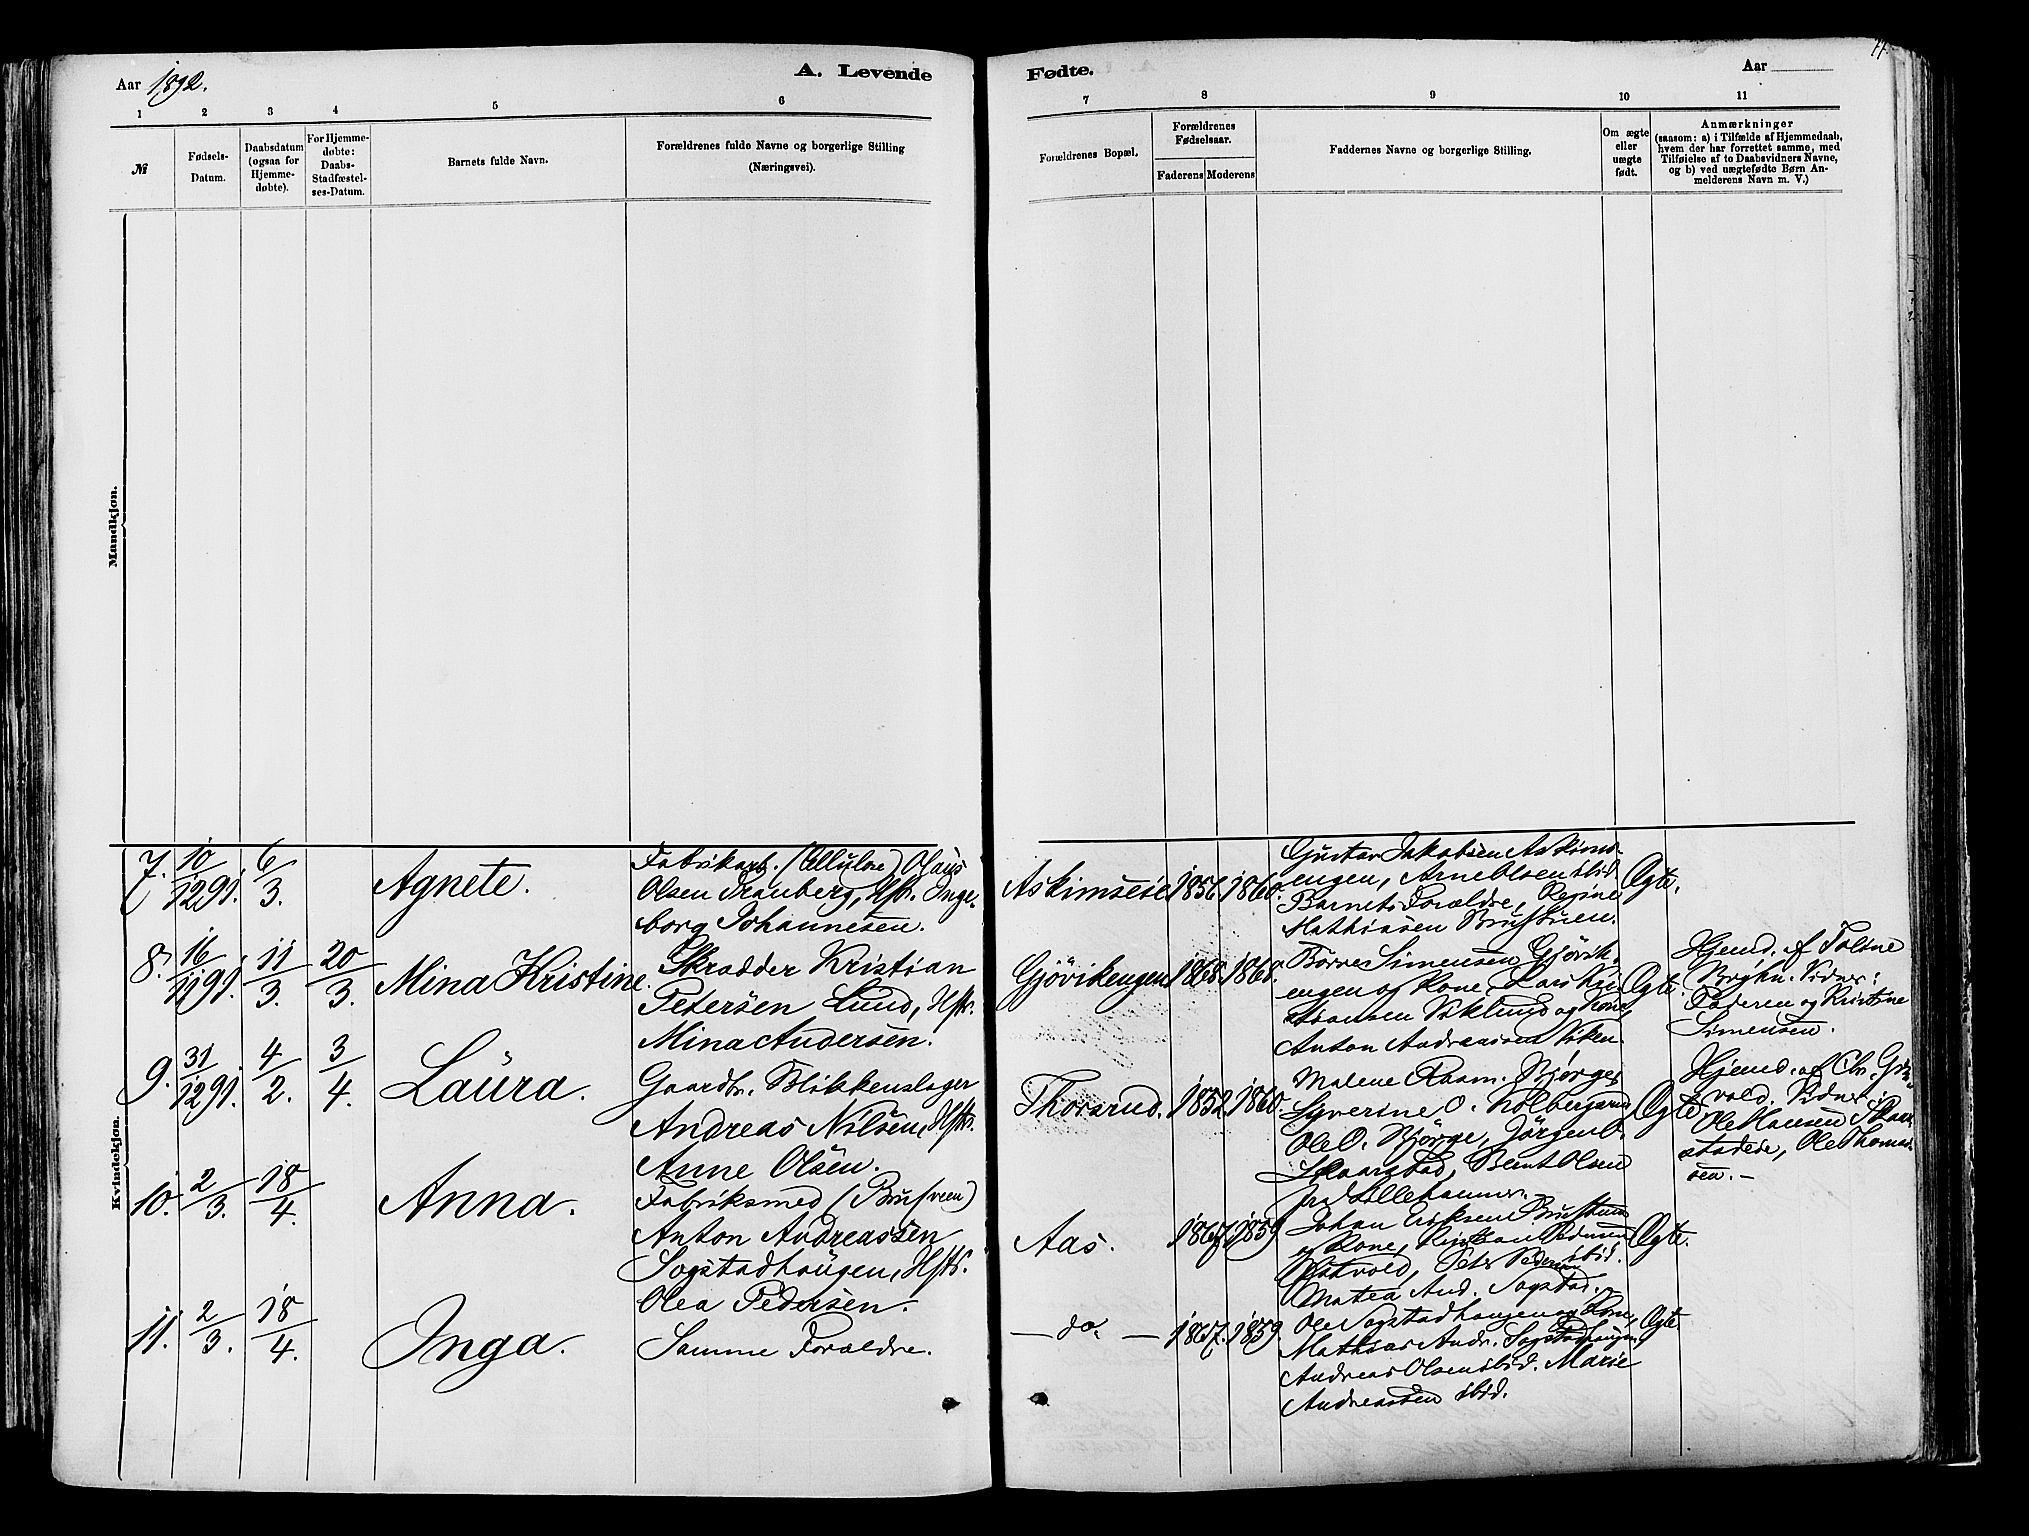 Aar 1892.
A. Levende
Fødte.
Aar
1 2 3 4 5 6
7 8 9 10 11
№
Fødsels-
Datum.
Daabsdatum
(ogsaa for
Hjemme-
døbte).
For Hjemme-
døbte:
Daabs-
Stadfæstel-
ses-Datum.
Barnets fulde Navn.
Forældrenes fulde Navne og borgerlige Stilling
(Næringsvei).
Forældrenes Bopæl.
Forældrenes
Fødselsaar.
Faderens Moderens
Faddernes Navne og borgerlige Stilling.
Om ægte
eller
uægte
født.
Anmærkninger
(saasom: a) i Tilfælde af Hjemmedaab,
hvem der har forrettet samme, med
Tilføielse af to Daabsvidners Navne,
og b) ved uægtefødte Børn An-
melderens Navn m. V.)
Mandkjøn.
Kvindekjøn.
7. 10/12 91. 6/3. Agnete.
Fabrikarb. (Cellulose) Olaus
Olsen Tranberg, Hst. Inge-
borg Johannesen.
Askimseie 1856. 1860.
Gustav Jakobsen Askims-
engen, Arne Olsen ibid
Barnets Forældre, Regine
Mathiasen Brustuen.
Ægte.
8. 16/11 91. 11/3. 20/3. Mina Kristine.
Skrædder Kristian
Petersen Lund, Hst.
Mina Andersen.
Gjövikengen 1868. 1868.
Simensen Gjövik-
engen og Kone, Lars Kri-
stiansen Viklund og Kone,
Anton Andreassen Viken.
Ægte.
Hjemd. af Taline
Vidner:
Faderen og Kristine
Simensen.
9. 31/12 91. 4/2. 3/4. Laura.
Gaardbr. Blikkenslager
Andreas Nilsen, Hst.
Anne Olsen.
Thorsrud. 1852. 1860.
Malene Raam. Bjørge,
Syverine O. Kolbergsrud,
Ole O. Bjørge, Jörgen O.
Skaarstad, Bernt Olsen
fra Lillehammer.
Ægte
Hjemd. af Chr.
vold. Vidner:
Ole Hansen Skaar-
stadeie, Ole Thomas-
sen.-
10. 2/3. 18/4. Anna.
Fabriksmed (Brusveen)
Anton Andreassen
Sogstadhaugen, Hst.
Olea Pedersen.
Aas. 1867. 1859
Johan Eriksen Brustuen
og Kone, Kristian Pedersen
Peter Pedersen ibid.
Matea And. Sogstad.
Ægte.
11. 2/3. 18/4. Inga.
Samme Forældre.
— do. — 1867. 1859
Ole Sogstadhaugen og Kone,
Mathias Andr. Sogstadhaugen,
Andreas Olsen ibid. Marie
Andreassen ibid.
Ægte.